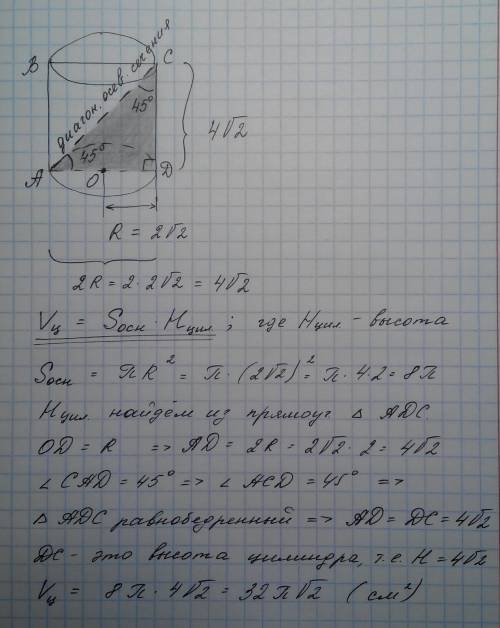 B C
диагон. осев. сечения
45°
4√2
45°
A O D
R = 2√2
2R = 2 · 2√2 = 4√2
Vц = Sосн · Hцил ; где Hцил – высота
Sосн = πR² = π · (2√2)² = π · 4 · 2 = 8π
Hцил. найдём из прямоуг △ ADC.
OD = R => AD = 2R = 2√2 · 2 = 4√2
∠ CAD = 45° => ∠ ACD = 45° =>
△ ADC равнобедренный => AD = DC = 4√2
DC – это высота цилиндра, т.е. H = 4√2
Vц = 8π · 4√2 = 32π√2 (см²)